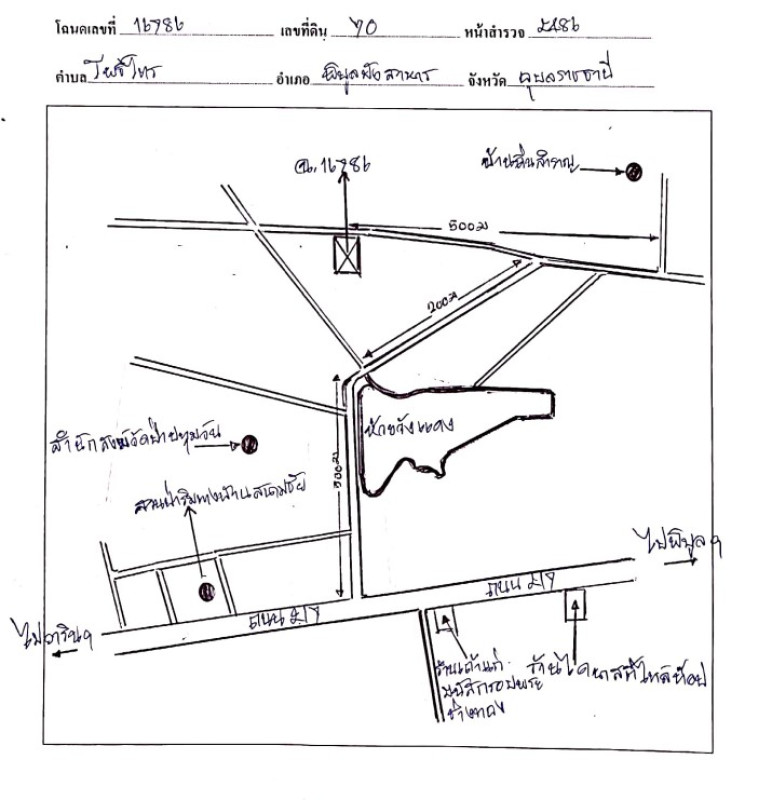 โฉนดเลขที่ 16786 เลขที่ดิน 70 หน้าสำรวจ 2486
ตำบล โพธิ์ไทร อำเภอ พิบูลมังสาหาร จังหวัด อุบลราชธานี
ฉ.16786
บ้านชื่นสำราญ
500ม
200ม
ห้วยวังแดง
สำนักสงฆ์วัดป่าปทุมวัน
สวนป่าริมทางบ้านแสนชัย
500ม
ไปพิบูลฯ
ถนน 217
ถนน 217
ไปวารินฯ
ร้าน
ร้านไดนาสตี้ไทล์ท้อป